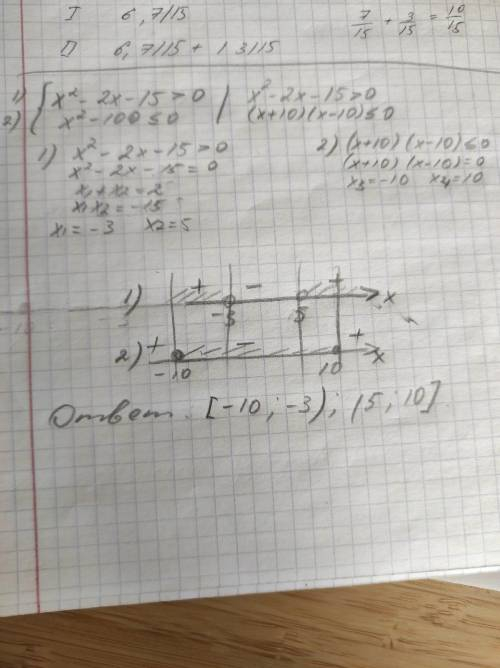 I 6, 7/15
II 6, 7/15 + 1 3/15
7/15 + 3/15 = 10/15
1) { x² - 2x - 15 > 0 | x² - 2x - 15 > 0
2) { x² - 100 ≤ 0 | (x+10)(x-10) ≤ 0
1) x² - 2x - 15 > 0
x² - 2x - 15 = 0
x₁ + x₂ = 2
x₁x₂ = -15
x₁ = -3 x₂ = 5
2) (x+10)(x-10) ≤ 0
(x+10)(x-10) = 0
x₃ = -10 x₄ = 10
1) + - + x
-3 5
2) + - + x
-10 10
Ответ: [-10; -3); (5; 10]